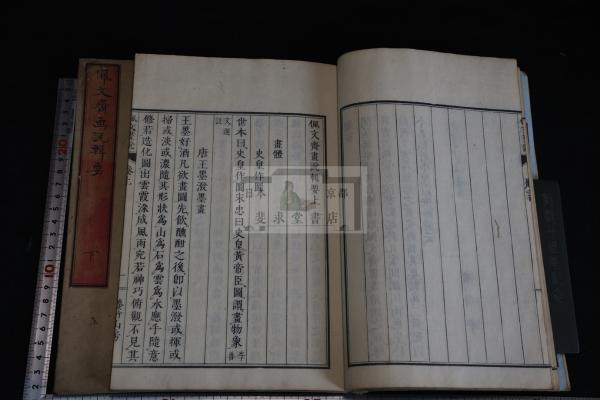 佩文齋画説輯要
下
佩文齋畫説輯要上
畫體
史皇作圖
世本曰史皇作圖宋忠曰史皇黄帝臣圖謂畫物象
李善
文選
註
唐王墨潑墨畫
王墨好酒凡欲畫圖先飲醺酣之後卽以墨潑或揮或
掃或淡或濃隨其形狀爲山爲石爲雲爲水應手隨意
倏若造化圖出雲霞染成風雨宛若神巧俯觀不見其
日本 京都
斐求堂書店